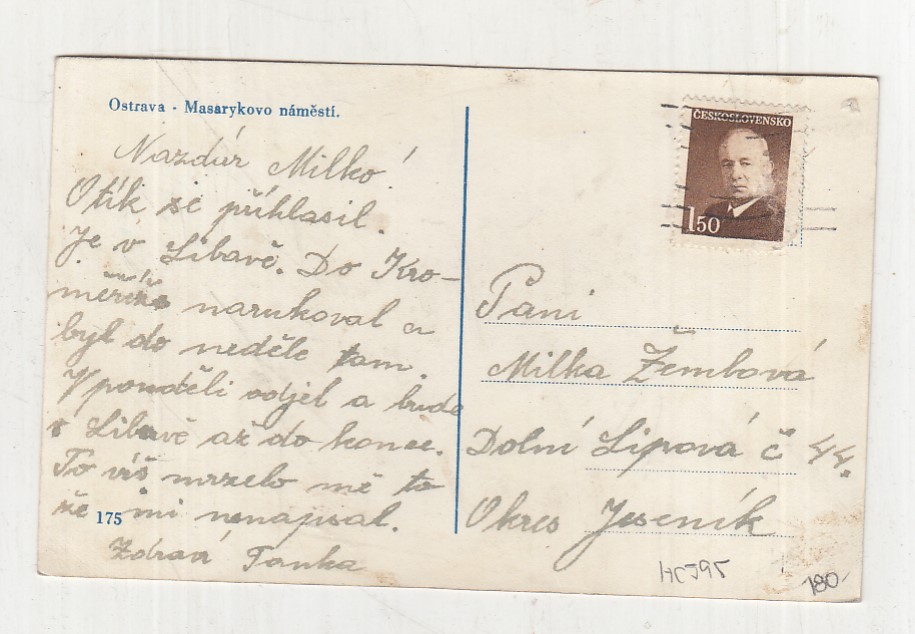 Ostrava - Masarykovo náměstí.
Nazdár Milko!
Otík se přihlasil.
Je v Libavě. Do Kro-
měříže narukoval a
byl do neděle tam.
V pondělí odjel a bude
v Libavě až do konce.
To víš mrzelo mě to
že mi nenapsal.
175
Zdraví Tonka
ČESKOSLOVENSKO
150
Paní
Milka Žembová
Dolní Lipová č 44.
Okres Jeseník
180-